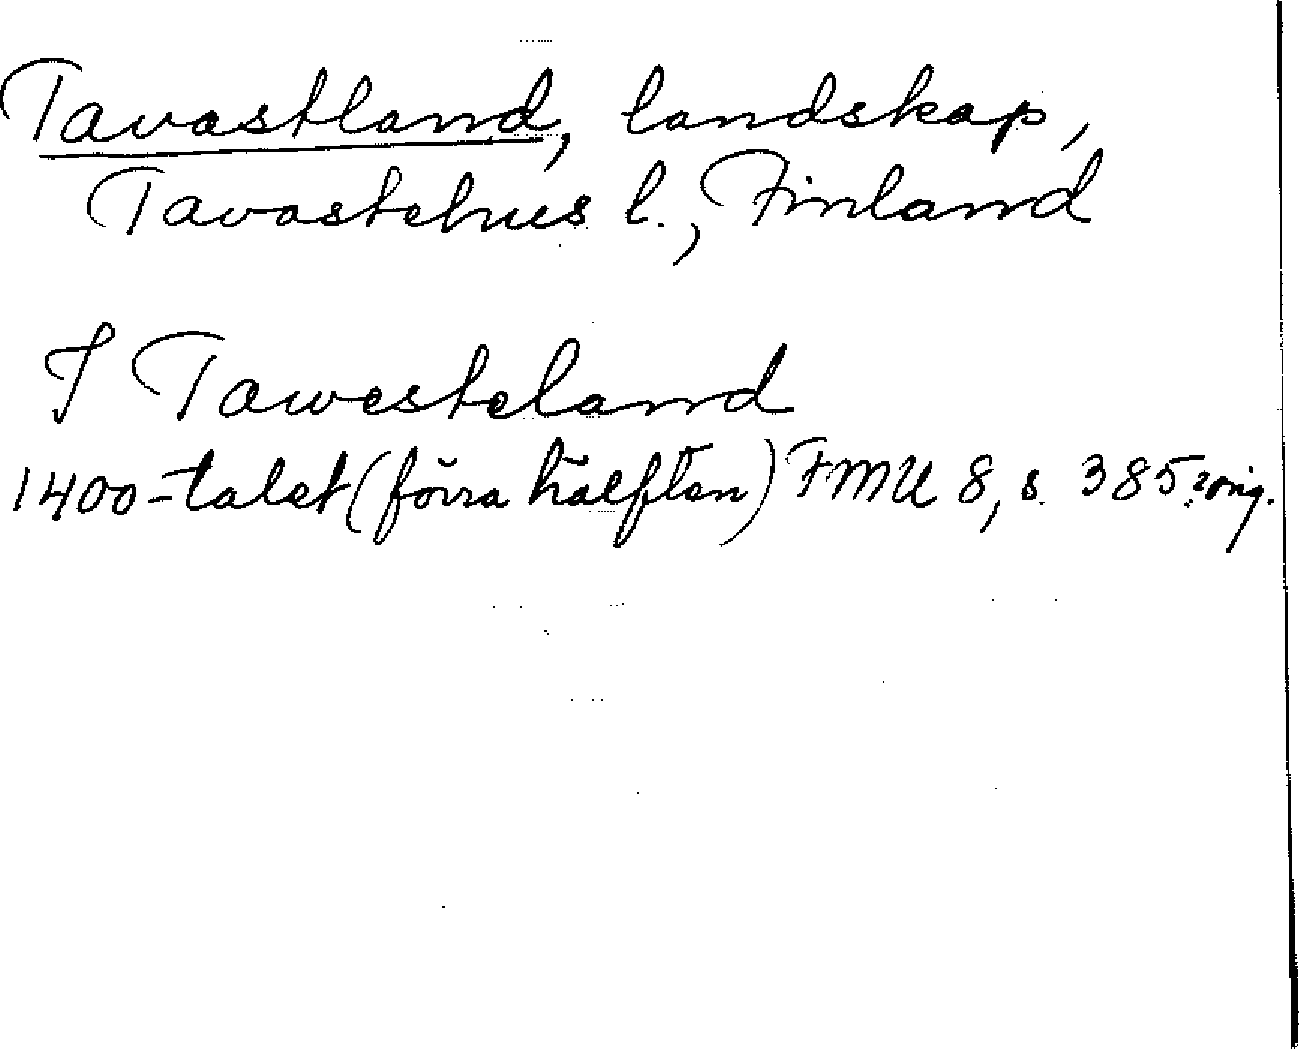 Tavastland, landskap,
Tavastehus l., Finland
I Tawesteland
1400-talet (förra hälften) FMU 8, s. 385 ? orig.